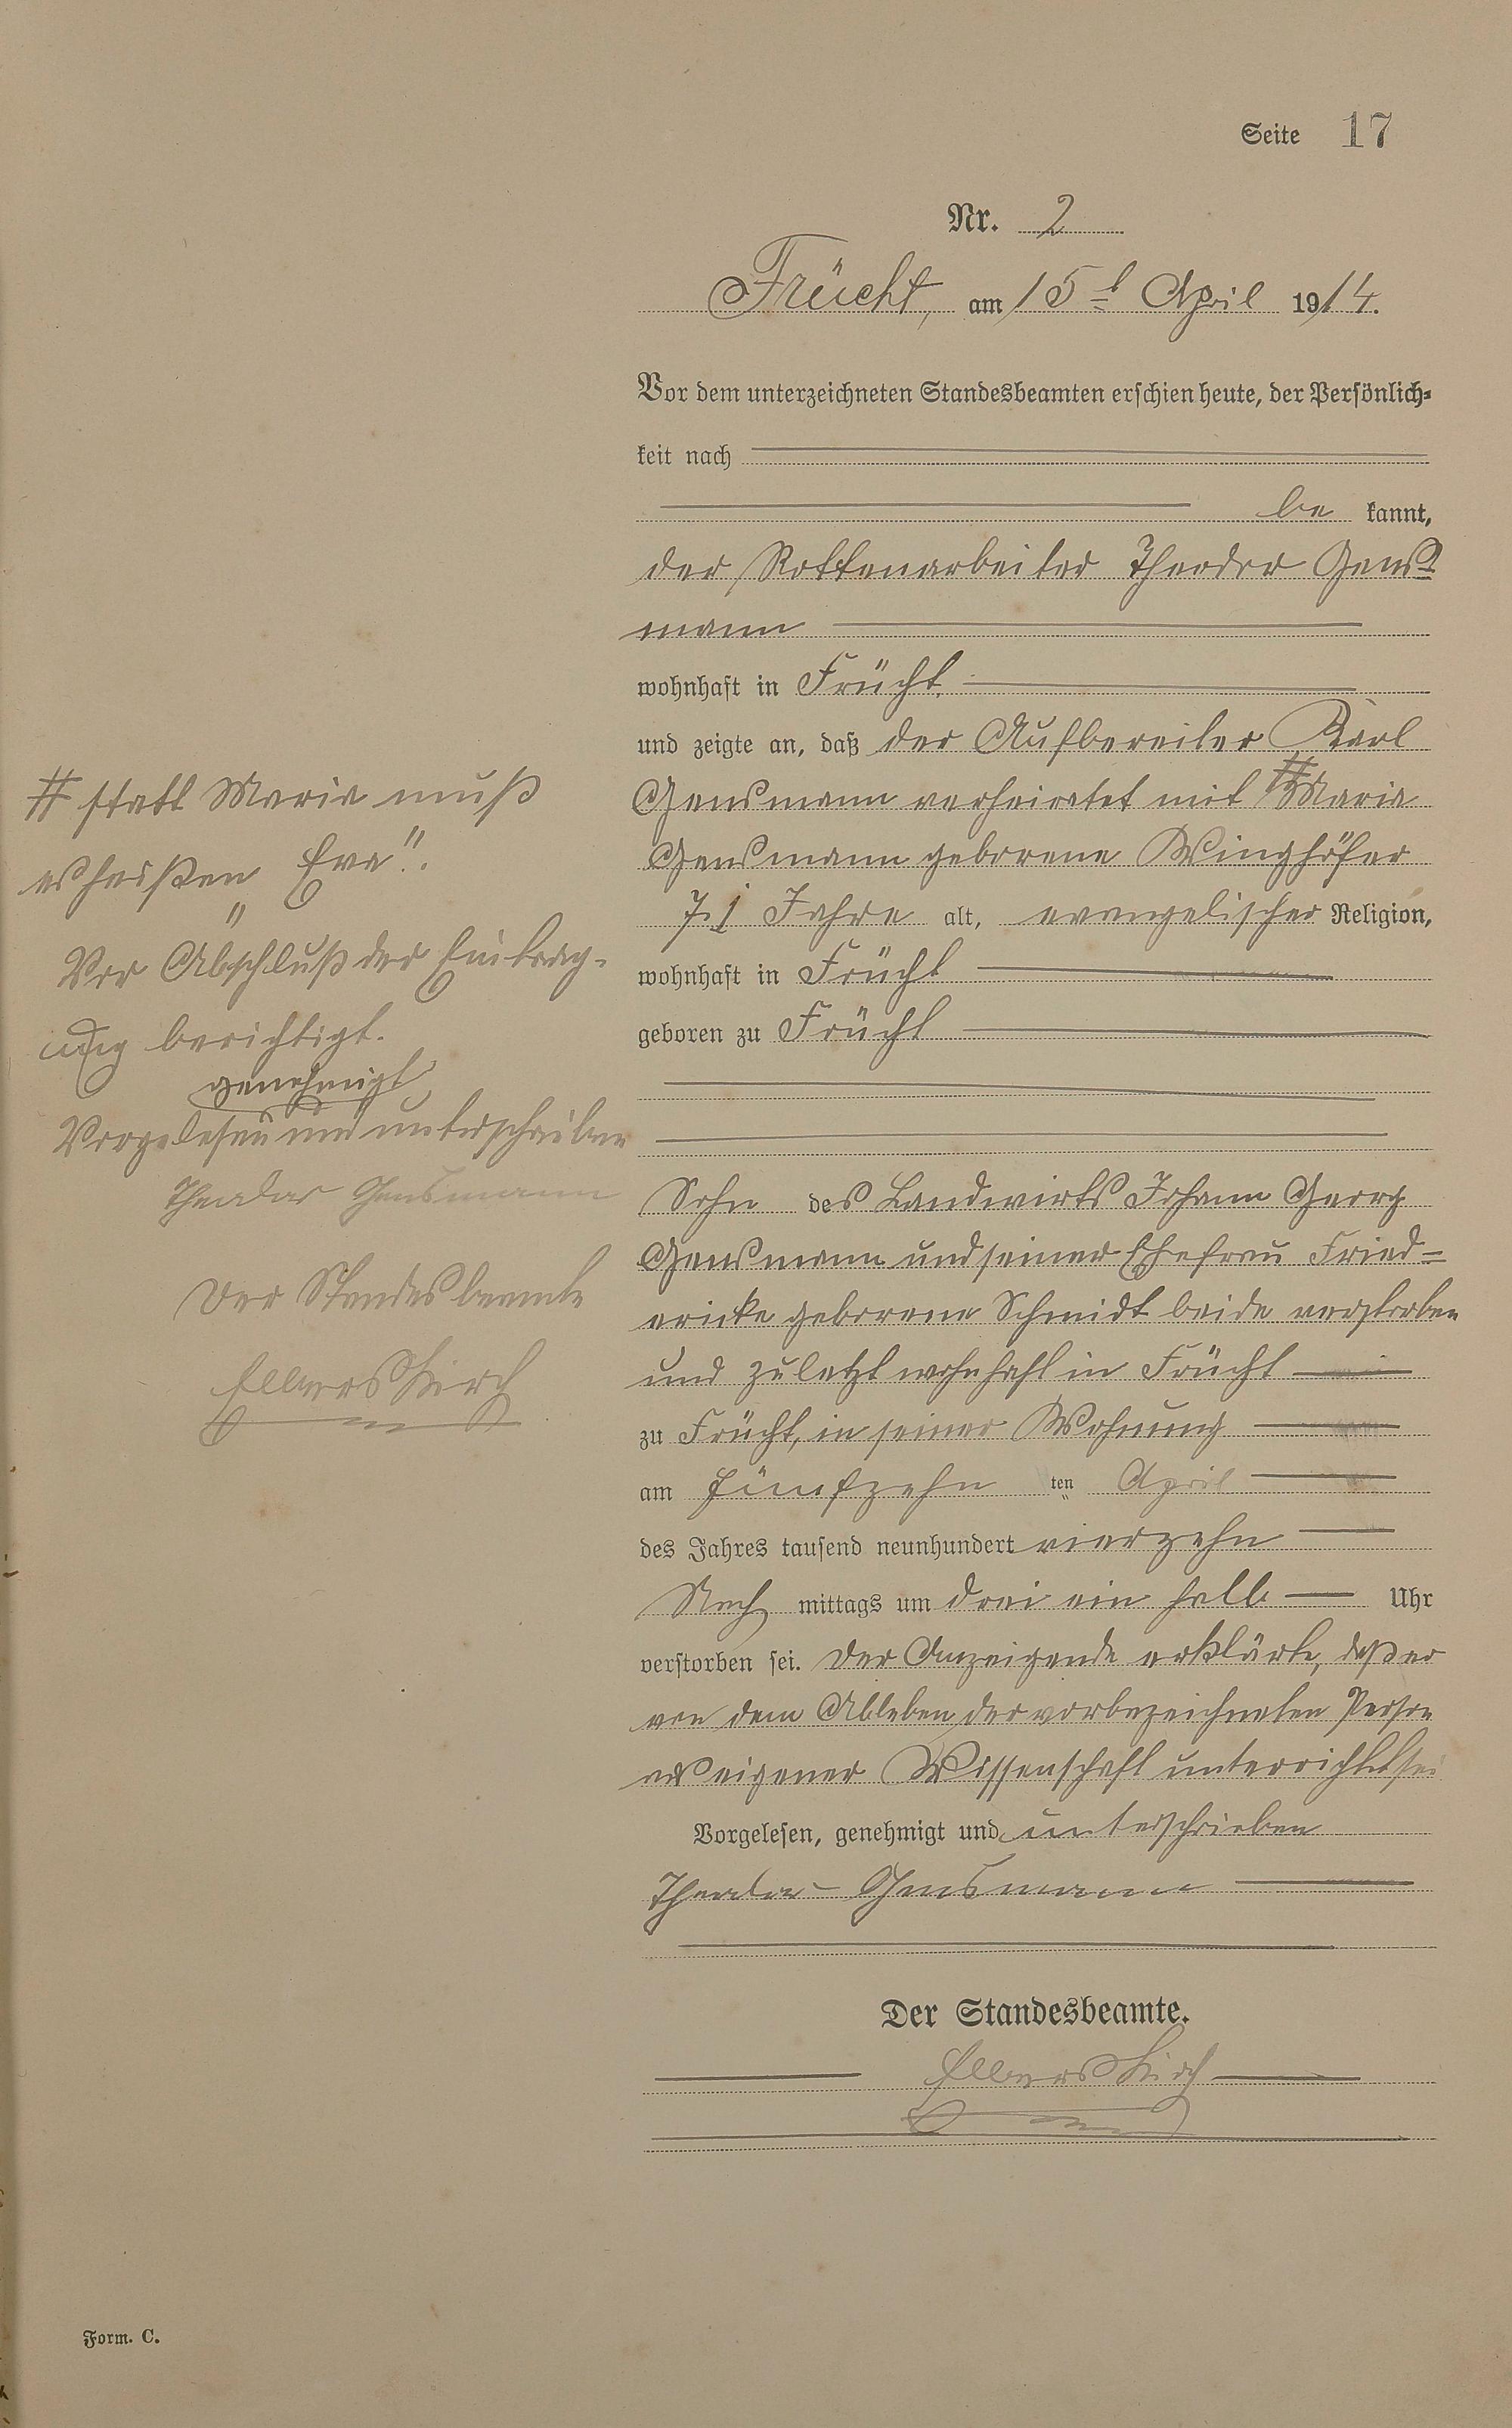 Seite 17
Nr. 2
Frücht, am 15t April 1914.
Vor dem unterzeichneten Standesbeamten erschien heute, der Persönlich-
keit nach
be kannt,
der Rottenarbeiter Theodor Gens-
mann
wohnhaft in Frücht,
und zeigte an, daß der Aufbereiter Karl
Gensmann verheiratet mit # Maria
Gensmann geborene Winghöfer
71 Jahre alt, evangelischer Religion,
wohnhaft in Frücht
geboren zu Frücht
Sohn des Landwirts Johann Georg
Gensmann und seiner Ehefrau Fried=
ericke geborene Schmidt beide verstorben
und zuletzt wohnhaft in Frücht
zu Frücht, in seiner Wohnung
am fünfzehn ten April
des Jahres tausend neunhundert vierzehn
Nach mittags um drei ein halb Uhr
verstorben sei. Der Anzeigende erklärte, daß er
von dem Ableben der vorbezeichneten Person
aus eigener Wissenschaft unterrichtet sei
Vorgelesen, genehmigt und unterschrieben
Theodor Gensmann
Der Standesbeamte.
Ellerskirch
# statt Maria muß
es heißen „Eva".
Vor Abschluß der Eintrag-
ung berichtigt.
genehmigt
Vorgelesen und unterschrieben
Theodor Gensmann
Der Standesbeamte
Ellerskirch
Form. C.